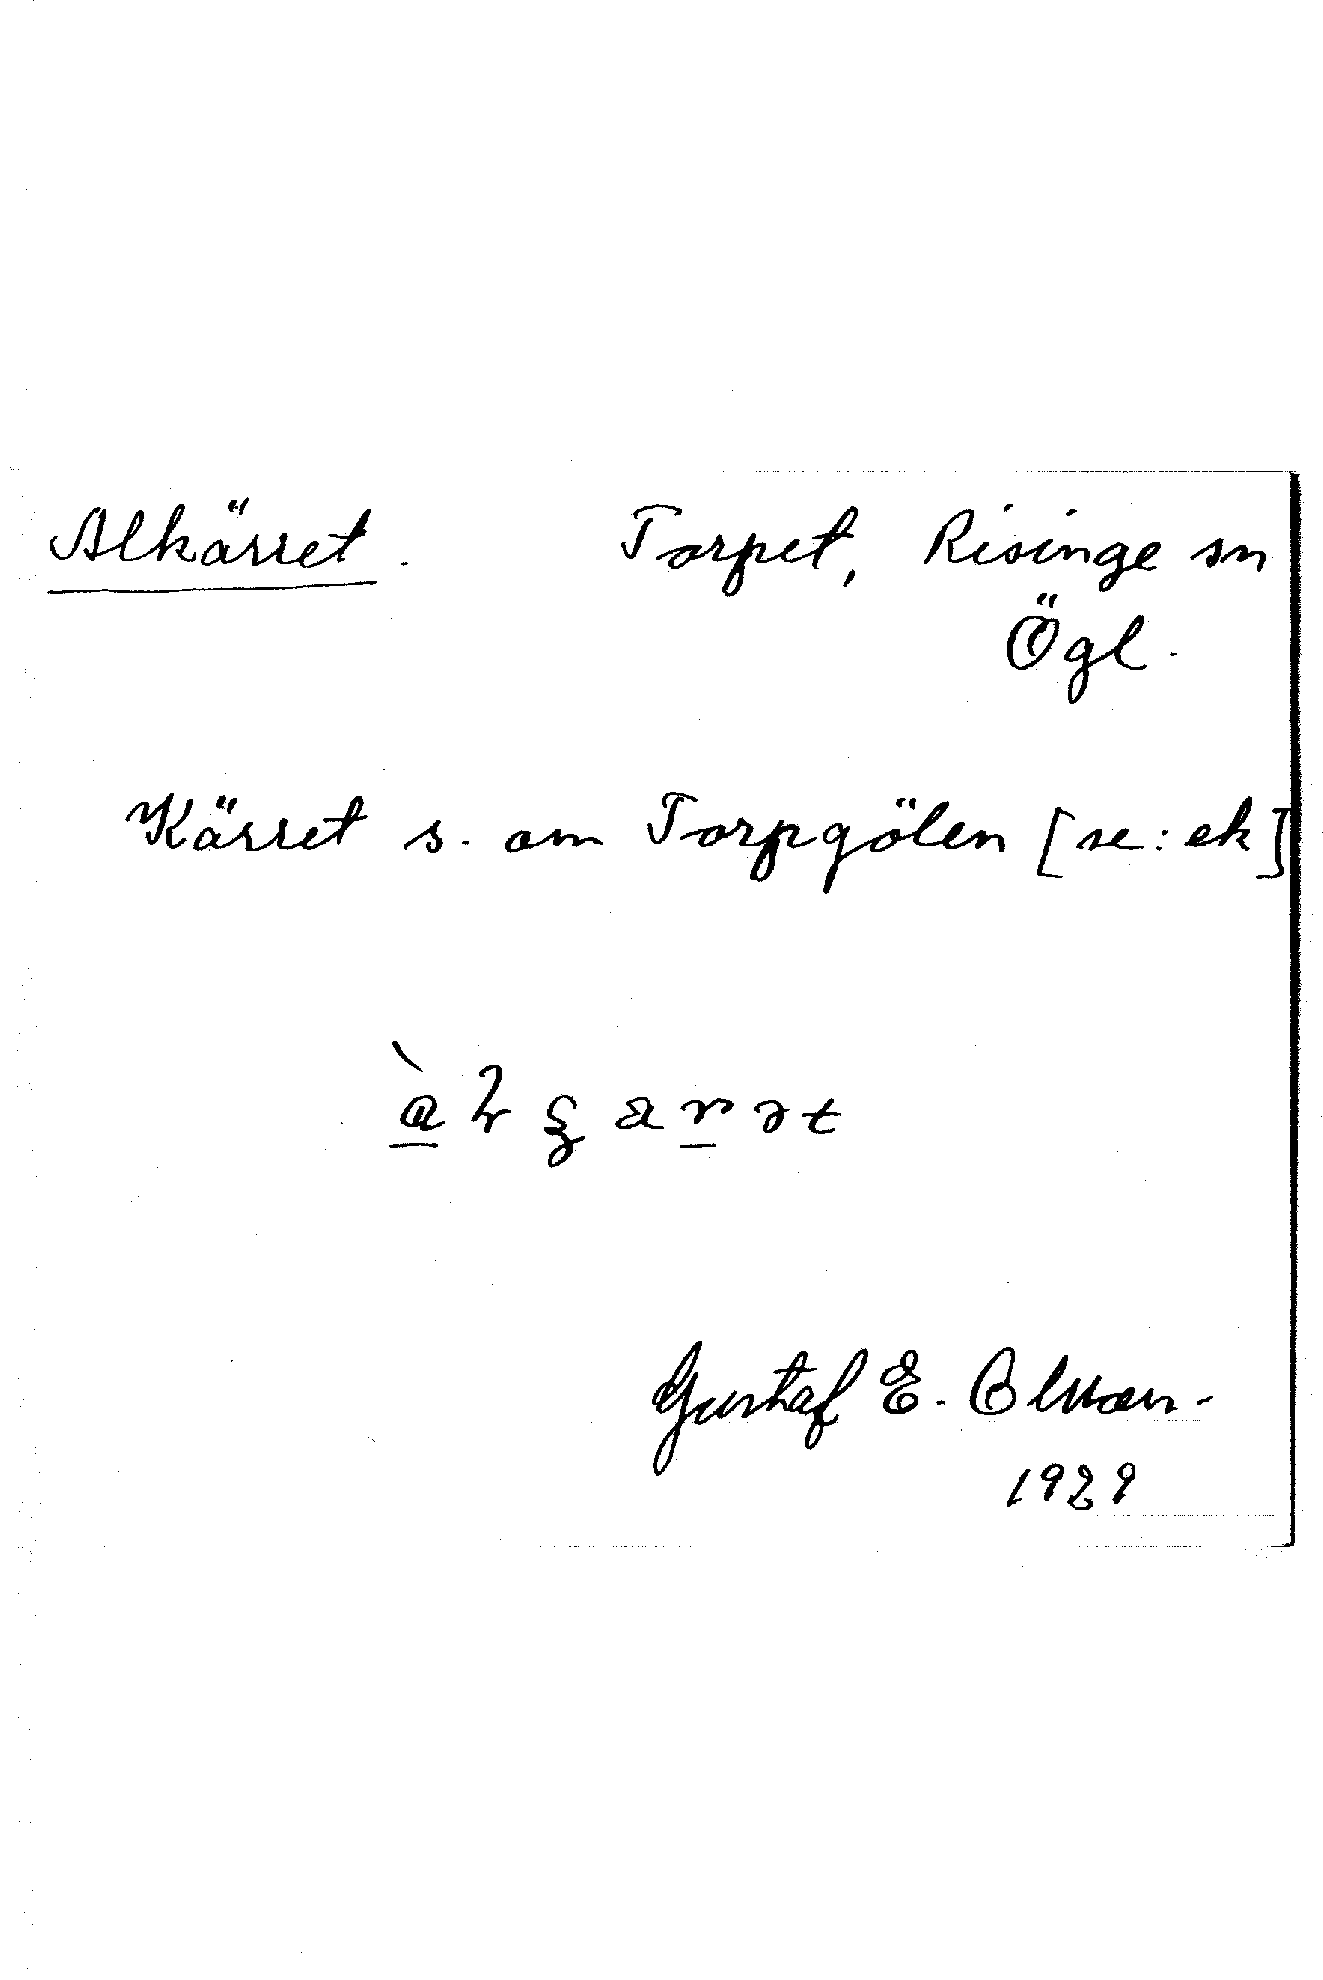 Alkärret. Torpet, Risinge sn
Ögl.
Kärret s. om Torpgölen [se: ek]
Gustaf E. Olsson.
1929